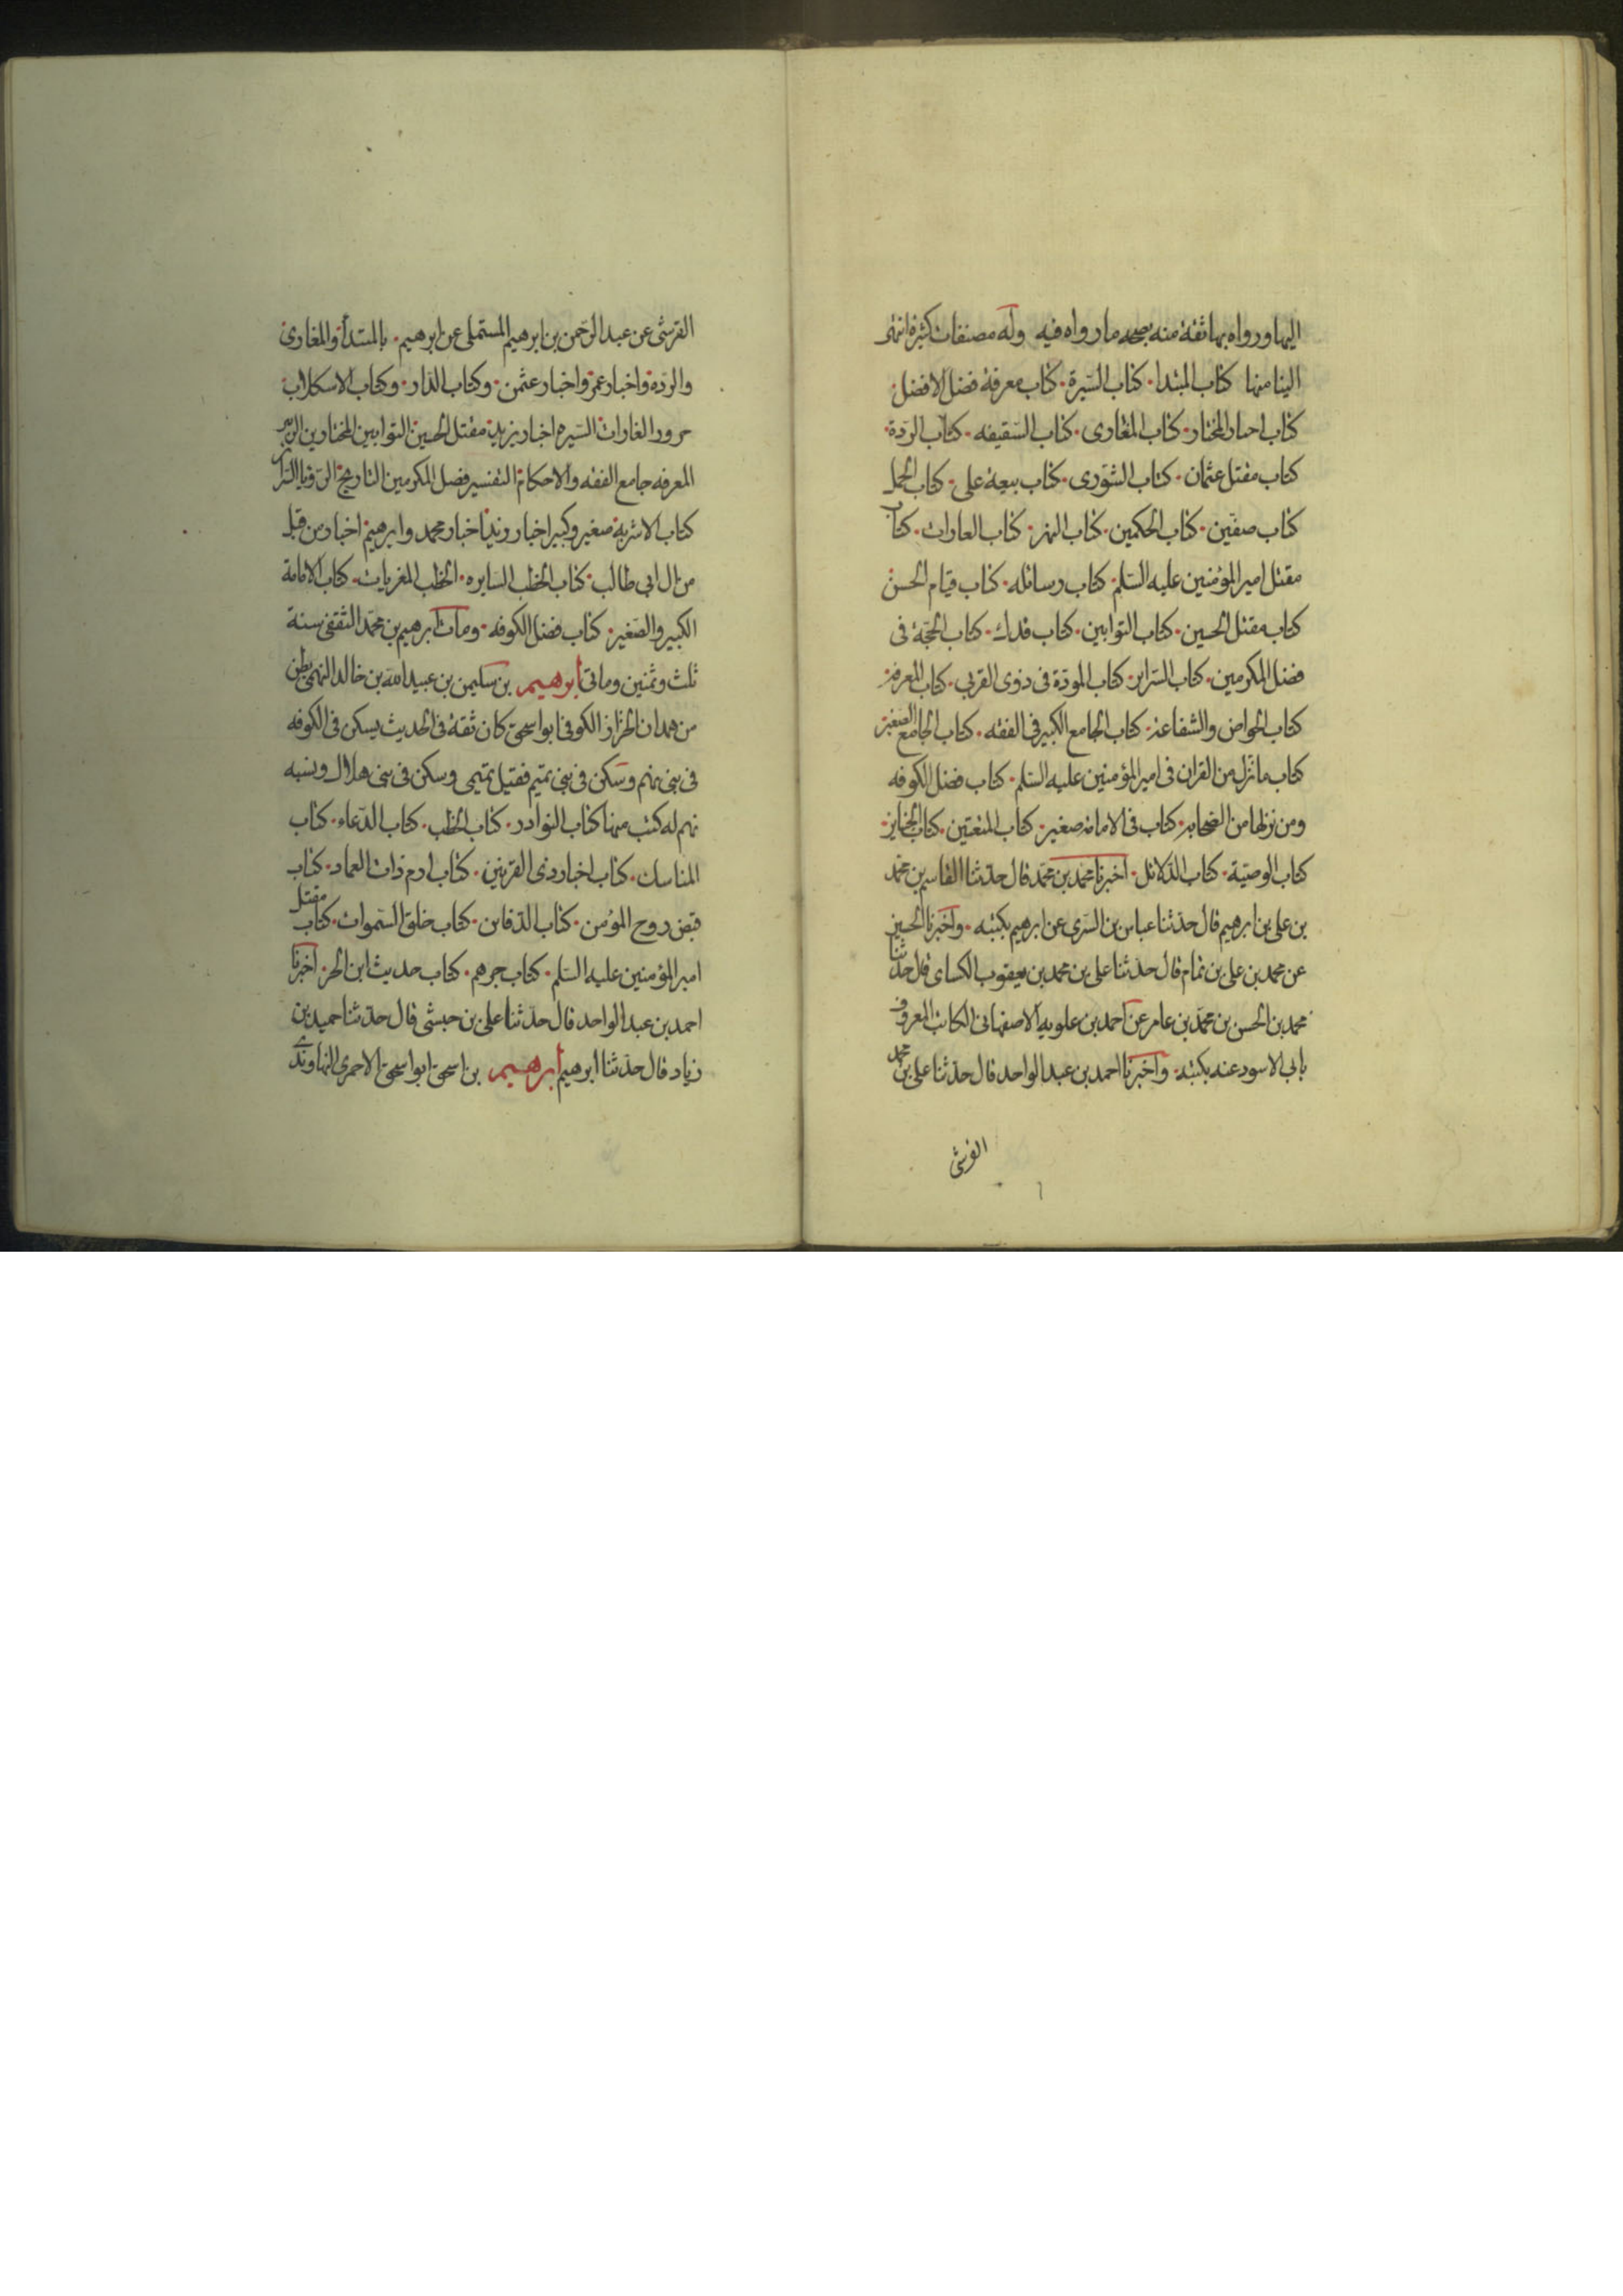 اليها ورواه بها ثقة منه بصحه ما رواه فيه وله مصنفات كثيرة انتهى
الينا منها كتاب المبتدا. كتاب السيرة. كتاب معرفة فضل الافضل.
كتاب اخبار المختار. كتاب المغازى. كتاب السقيفه. كتاب الردة.
كتاب مقتل عثمان. كتاب الشورى. كتاب بيعة على. كتاب الجمل
كتاب صفين. كتاب الحكمين. كتاب النهر. كتاب الغارات. كتاب
مقتل امير المؤمنين عليه السلم. كتاب رسائله. كتاب قيام الحسن
كتاب مقتل الحسين. كتاب التوابين. كتاب فدك. كتاب الحجة فى
فضل المكرمين. كتاب السراير. كتاب المودة فى ذوى القربى. كتاب المعرفة.
كتاب الحوض والشفاعة. كتاب الجامع الكبير فى الفقه. كتاب الجامع الصغير
كتاب ما نزل من القران فى امير المؤمنين عليه السلم. كتاب فضل الكوفه
ومن نزلها من الصحابة. كتاب فى الامامة صغير. كتاب المتعتين. كتاب الجنايز.
كتاب الوصية. كتاب الدلائل. اخبرنا محمد بن محمد قال حدثنا القاسم بن محمد
بن على بن ابرهيم قال حدثنا عباس بن السرى عن ابرهيم بكتبه. واخبرنا الحسين
عن محمد بن على بن تمام قال حدثنا على بن محمد بن يعقوب الكساى قال حدثنا
محمد بن الحسن بن محمد بن عامر عن احمد بن علويه الاصفهانى الكاتب المعروف
بابى الاسود عنه بكتبه. واخبرنا احمد بن عبد الواحد قال حدثنا على بن محمد
القرشى
القرشى عن عبد الرحمن بن ابرهيم المستملى عن ابرهيم. بالمبتدأ والمغازى
والردة واخبار عمر واخبار عثمن. وكتاب الدار. وكتاب
الغارات السيره اخبار يزيد مقتل الحسين التوابين المختار بن الزبير
المعرفه جامع الفقه والاحكام التفسير فضل المكرمين التاريخ الرؤيا السراير
كتاب الاشربة صغير وكبير اخبار زيد اخبار محمد وابرهيم اخبار من قتل
من ال ابى طالب. كتاب الخطب السايره. الخطب المغربات. كتاب الامامة
الكبير والصغير. كتاب فضل الكوفه. ومات ابرهيم بن محمد الثقفى سنة
ثلث وثمنين وماتى ابرهيم بن سليمن بن عبيد الله بن خالد النهمى بطن
من همدان الخزاز الكوفى ابو اسحق كان ثقة فى الحديث يسكن فى الكوفه
فى بنى نهم وسكن فى بنى تميم فقيل تميمى وسكن فى بنى هلال ونسبه
نهم له كتب منها كتاب النوادر. كتاب الخطب. كتاب الدعاء. كتاب
المناسك. كتاب اخبار ذى القرنين. كتاب ارم ذات العماد. كتاب
قبض روح المؤمن. كتاب الدفاين. كتاب خلق السموات. كتاب مقتل
امير المؤمنين عليه السلم. كتاب جرهم. كتاب حديث ابن الحر. اخبرنا
احمد بن عبد الواحد قال حدثنا على بن حبشى قال حدثنا حميد بن
زياد قال حدثنا ابرهيم ابرهيم بن اسحق ابو اسحق الاحمرى النهاوندى